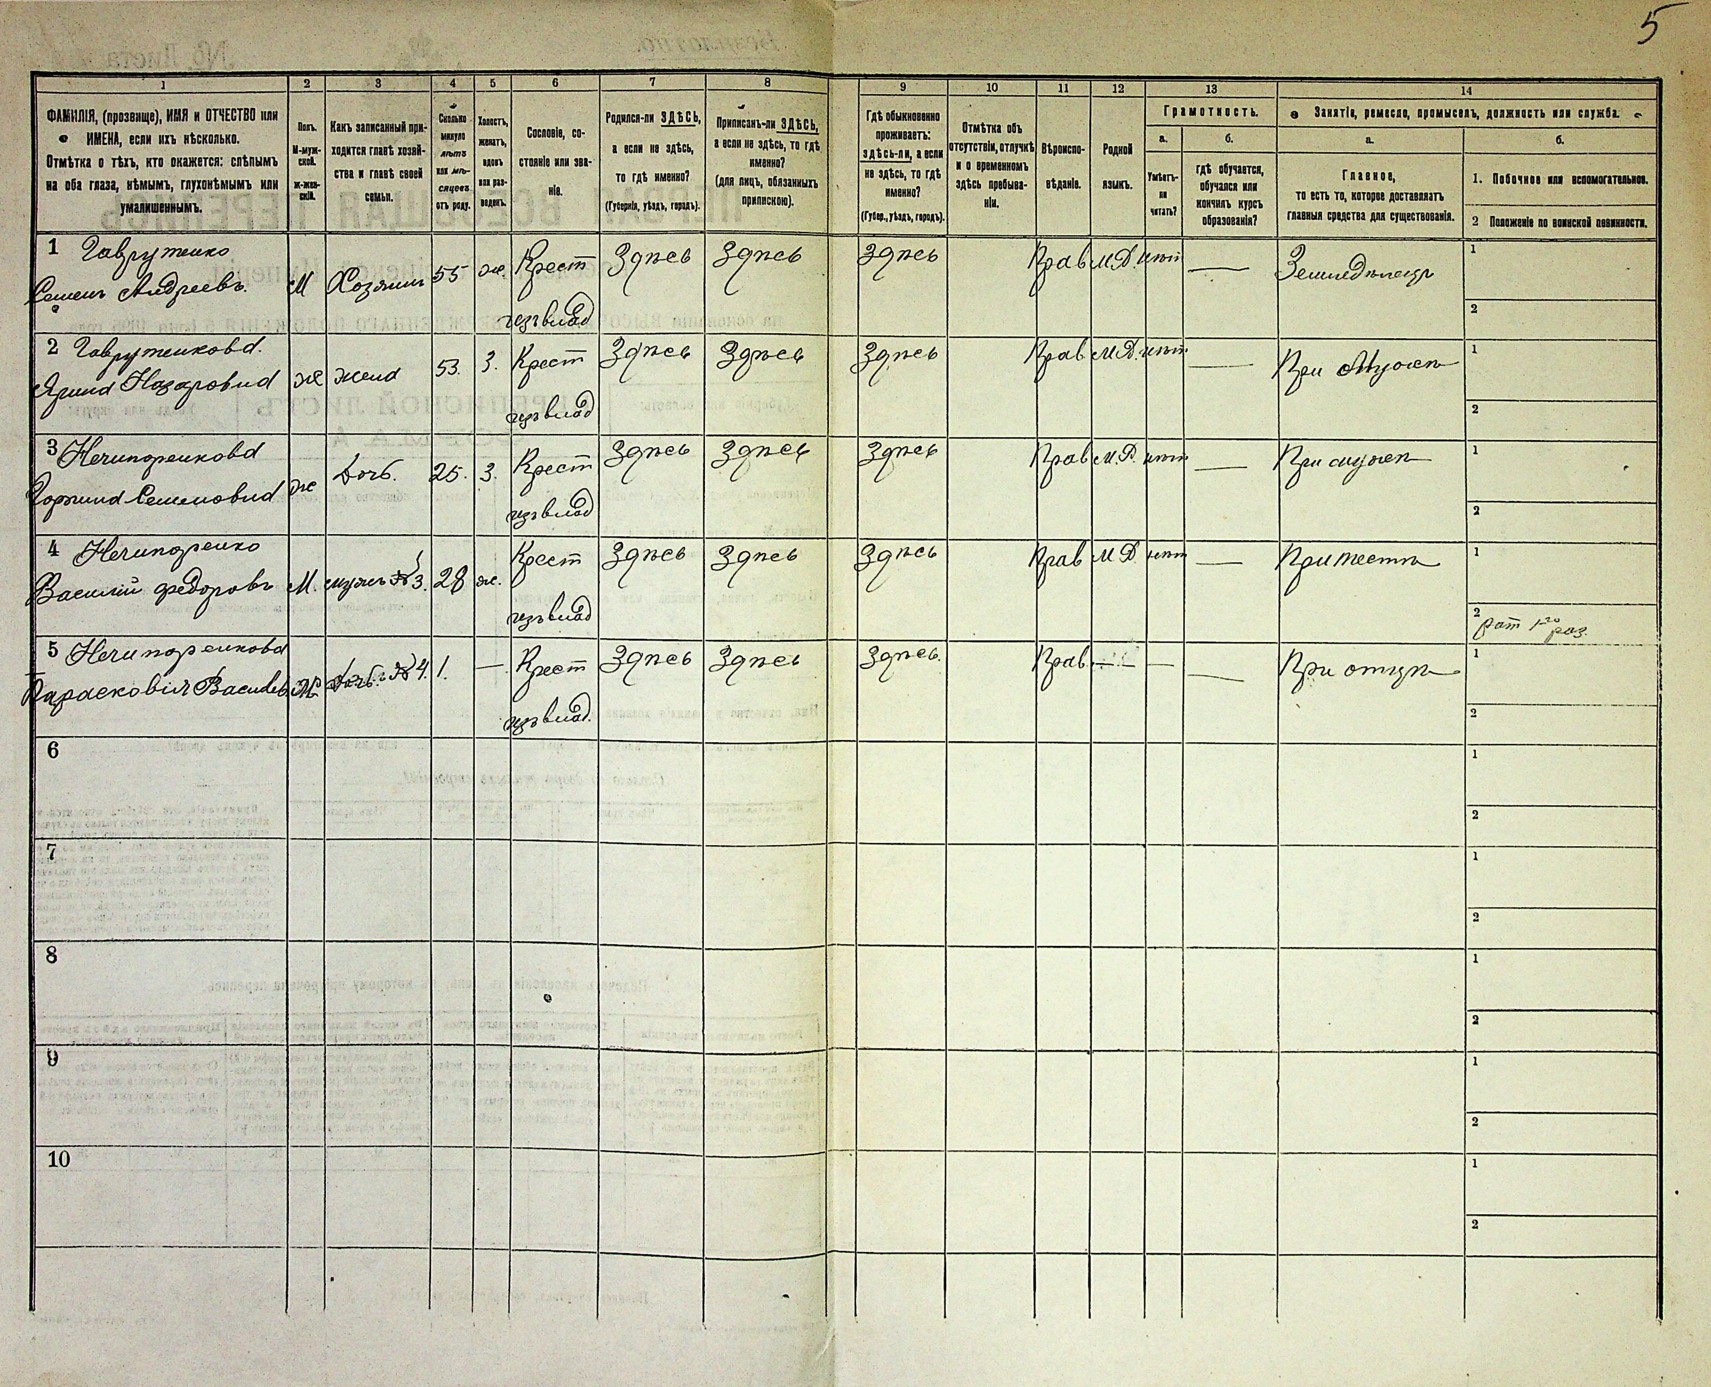 5
1
2
3
4
5
6
7
8
9
10
11
12
13
14
ФАМИЛІЯ, (прозвище), ИМЯ и ОТЧЕСТВО или
ИМЕНА, если ихъ нѣсколько.
Отмѣтка о тѣхъ, кто окажется: слѣпымъ
на оба глаза, нѣмымъ, глухонѣмымъ или
умалишеннымъ.
Полъ.
М-муж-
ской.
ж-жен-
скій.
Какъ записанный при-
ходится главѣ хозяй-
ства и главѣ своей
семьи.
Сколько
минуло
лѣтъ
или мѣ-
сяцевъ
отъ роду.
Холостъ,
женатъ,
вдовъ
или раз-
веденъ.
Сословіе, со-
стояніе или зва-
ніе.
Родился-ли ЗДѢСЬ,
а если не здѣсь,
то гдѣ именно?
(Губернія, уѣздъ, городъ).
Приписанъ-ли ЗДѢСЬ,
а если не здѣсь, то гдѣ
именно?
(для лицъ, обязанныхъ
припискою).
Гдѣ обыкновенно
проживаетъ:
здѣсь-ли, а если
не здѣсь, то гдѣ
именно?
(Губер., уѣздъ, городъ).
Отмѣтка объ
отсутствіи, отлучкѣ
и о временномъ
здѣсь пребыва-
ніи.
Вѣроиспо-
вѣданіе.
Родной
языкъ.
Грамотность.
а.
б.
Умѣетъ-
ли
читать?
гдѣ обучается,
обучался или
кончилъ курсъ
образованія?
Занятіе, ремесло, промыселъ, должность или служба.
а.
б.
Главное,
то есть то, которое доставляетъ
главныя средства для существованія.
1. Побочное или вспомогательное.
2 Положеніе по воинской повинности.
1 Гаврутенко
Семенъ Андреевъ.
М Хозяинъ 55 ж. Крест
изъ влад
Здѣсь Здѣсь Здѣсь Прав М.Р. нѣт — Земледѣлецъ
1
2
2 Гаврутенкова.
Ярина Назаровна
ж жена 53. З. Крест
изъ влад
Здѣсь Здѣсь Здѣсь Прав М.Р. нѣт — При мужѣ
1
2
3 Нечипоренкова
Горпина Семеновна
ж дочь. 25. З. Крест
изъ влад
Здѣсь Здѣсь Здѣсь Прав М.Р. нѣт — При мужѣ
1
2
4 Нечипоренко
Василій Федоровъ
М. мужъ №3. 28 ж. Крест
изъ влад
Здѣсь Здѣсь Здѣсь Прав М.Р. нѣт — При тестѣ
1
2
рат 1го раз.
5 Нечипоренкова
Парасковія Василев.
Ж дочь №4. 1. — Крест
изъ влад.
Здѣсь Здѣсь Здѣсь. Прав — — — При отцѣ
1
2
6
1
2
7
1
2
8
1
2
9
1
2
10
1
2